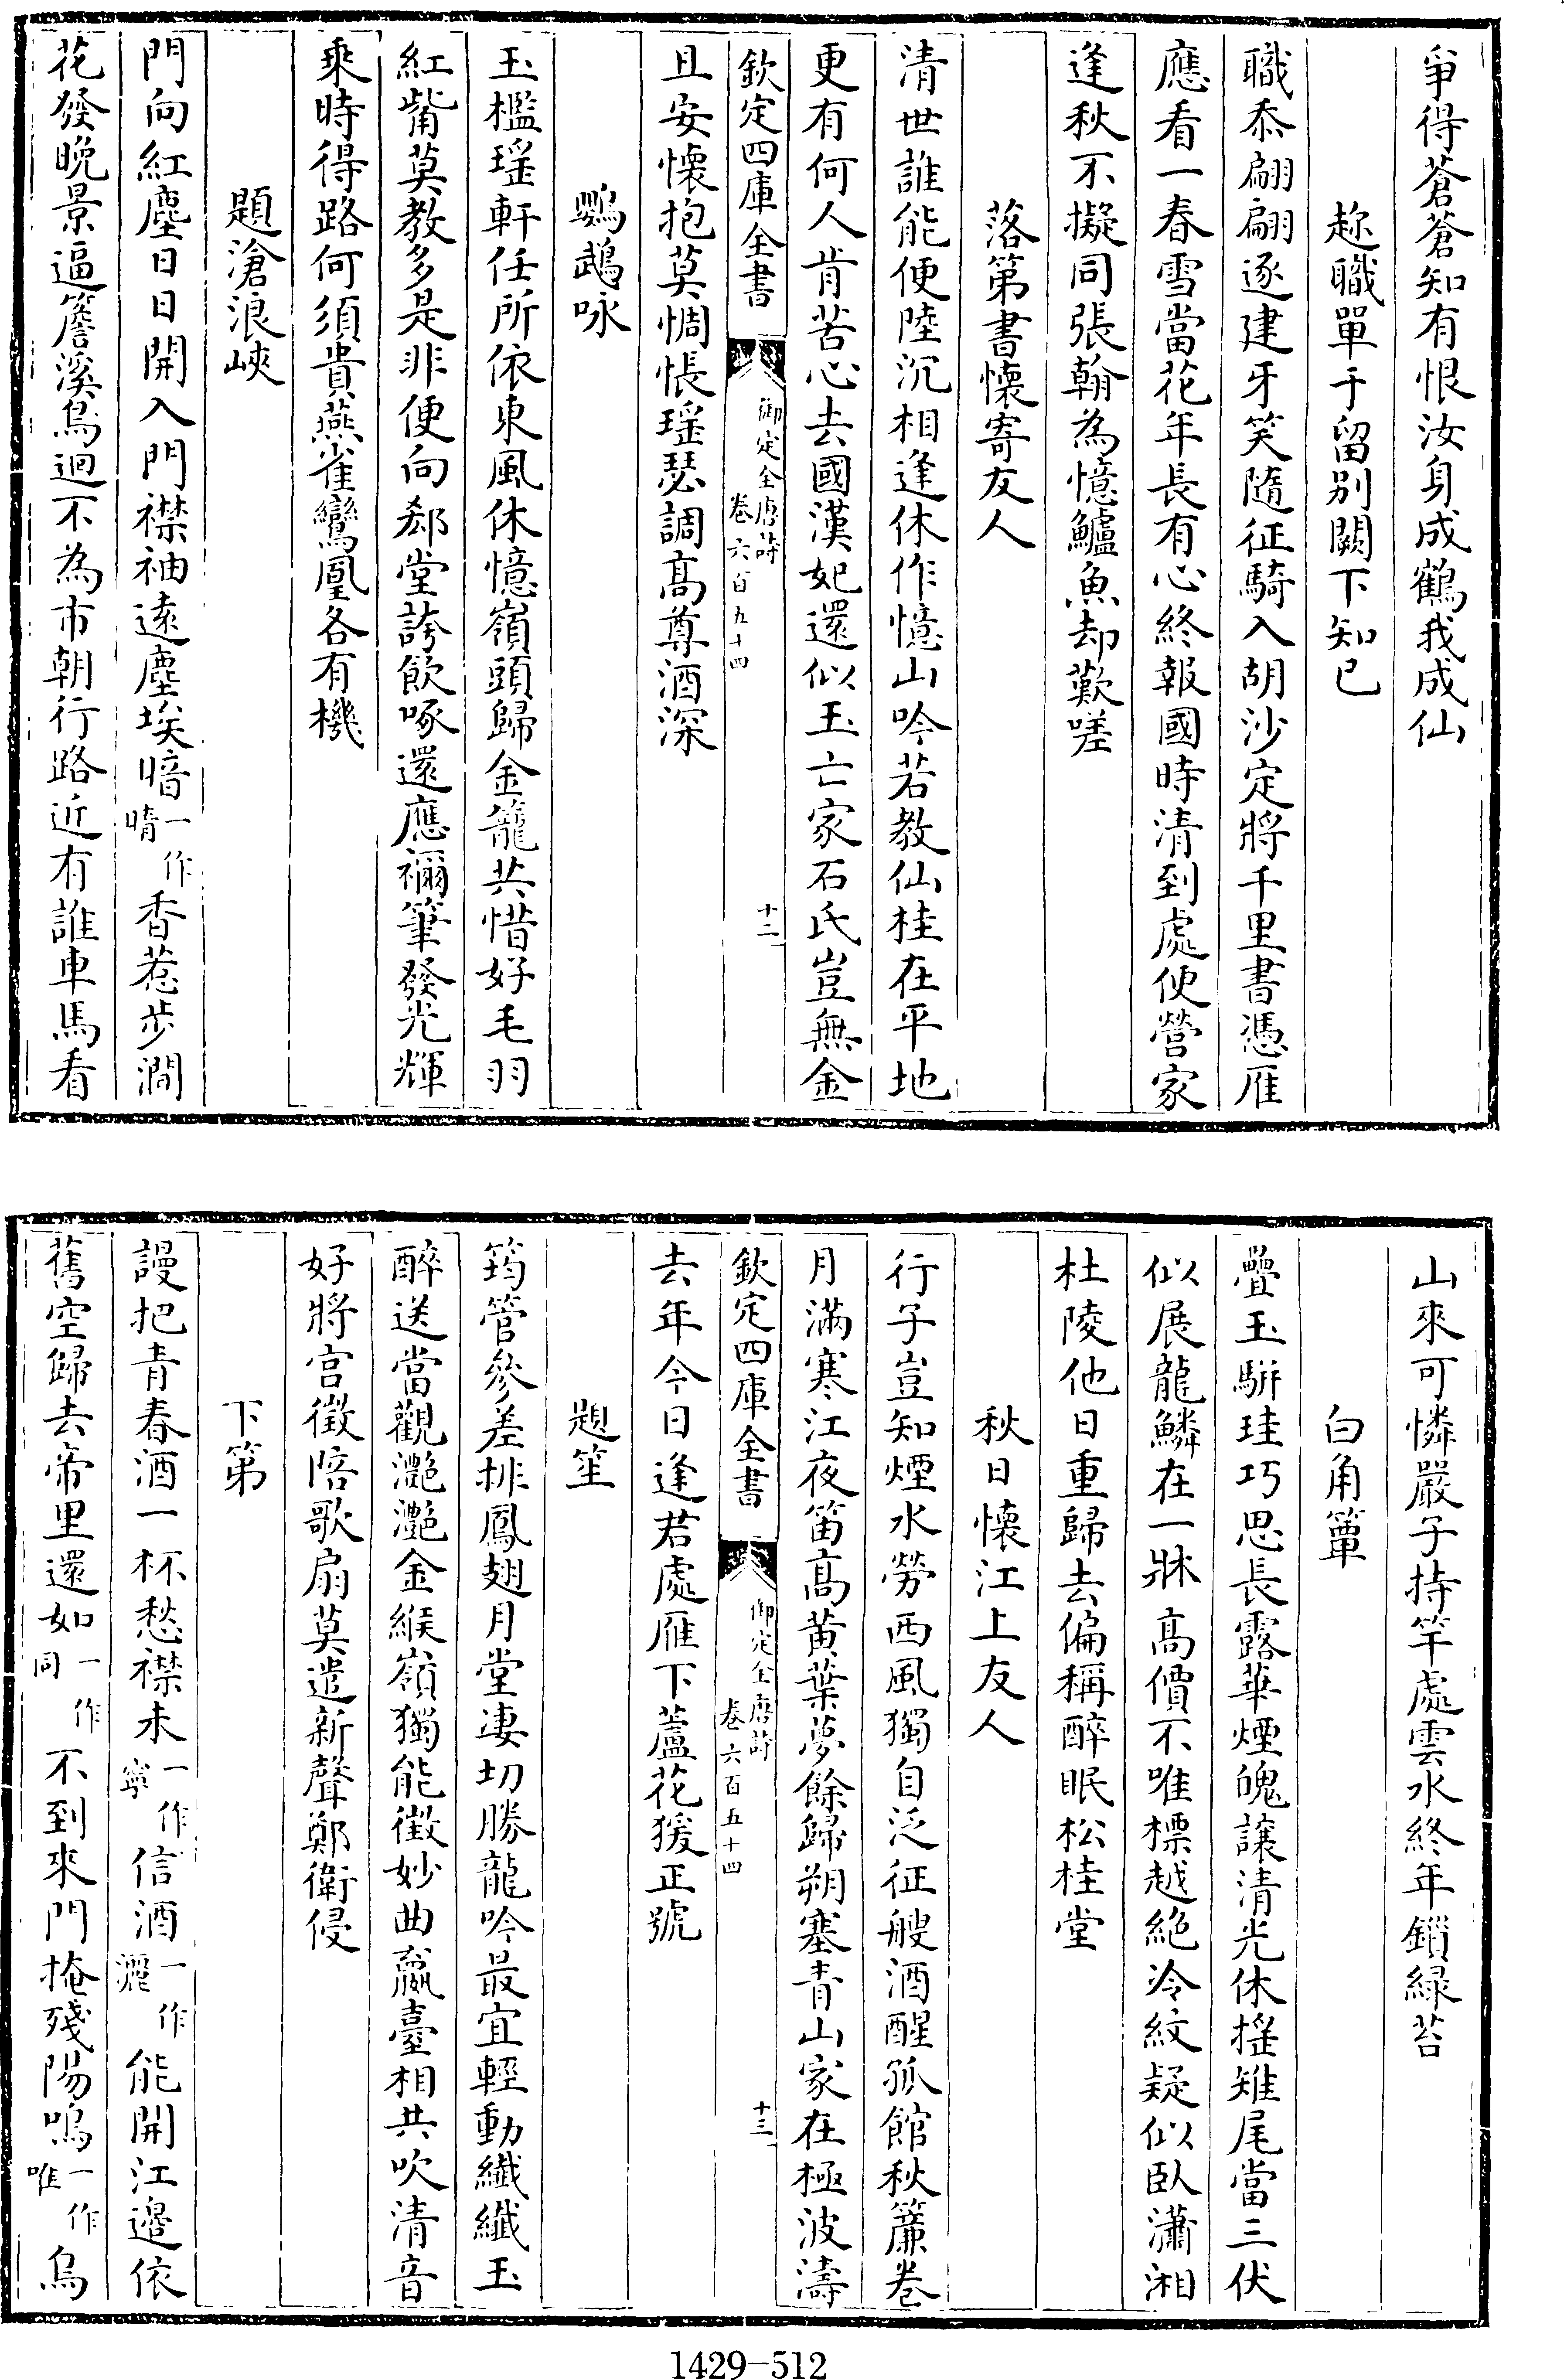 爭得蒼蒼知有恨汝身成鶴我成仙
趂職單于留别闕下知己
職忝翩翩逐建牙笑隨征騎入胡沙定將千里書憑雁
應看一春雪當花年長有心終報國時清到處便營家
逢秋不擬同張翰為憶鱸魚却歎嗟
落第書懷寄友人
清世誰能便陸沉相逢休作憶山吟若教仙桂在平地
更有何人肯苦心去國漢妃還似玉亡家石氏豈無金
欽定四庫全書
御定全唐詩
卷六百九十四
十二
且安懷抱莫惆悵瑤瑟調高尊酒深
鸚鵡咏
玉檻瑤軒任所依東風休憶嶺頭歸金籠共惜好毛羽
紅觜莫教多是非便向郄堂誇飲啄還應禰筆發光輝
乘時得路何須貴燕雀鸞凰各有機
題滄浪峽
門向紅塵日日開入門襟袖遠塵埃暗一作晴香惹步澗
花發晚景逼簷溪鳥迴不為市朝行路近有誰車馬看
山來可憐嚴子持竿處雲水終年鎖綠苔
白角簟
疊玉駢珪巧思長露華煙魄讓清光休摇雉尾當三伏
似展龍鱗在一牀高價不唯標越絶冷紋疑似臥瀟湘
杜陵他日重歸去偏稱醉眠松桂堂
秋日懷江上友人
行子豈知煙水勞西風獨自泛征艘酒醒孤館秋簾卷
月滿寒江夜笛高黄葉夢餘歸朔塞青山家在極波濤
欽定四庫全書
御定全唐詩
卷六百五十四
十三
去年今日逢君處雁下蘆花猨正號
題笙
筠管參差排鳳翅月堂凄切勝龍吟最宜輕動纖纖玉
醉送當觀灧灧金緱嶺獨能徵妙曲嬴臺相共吹清音
好將宫徵陪歌扇莫遣新聲鄭衛侵
下第
謾把青春酒一杯愁襟未一作寧信酒一作灑能開江邉依
舊空歸去帝里還如一作同不到來門掩殘陽鳴一作唯鳥
1429-512